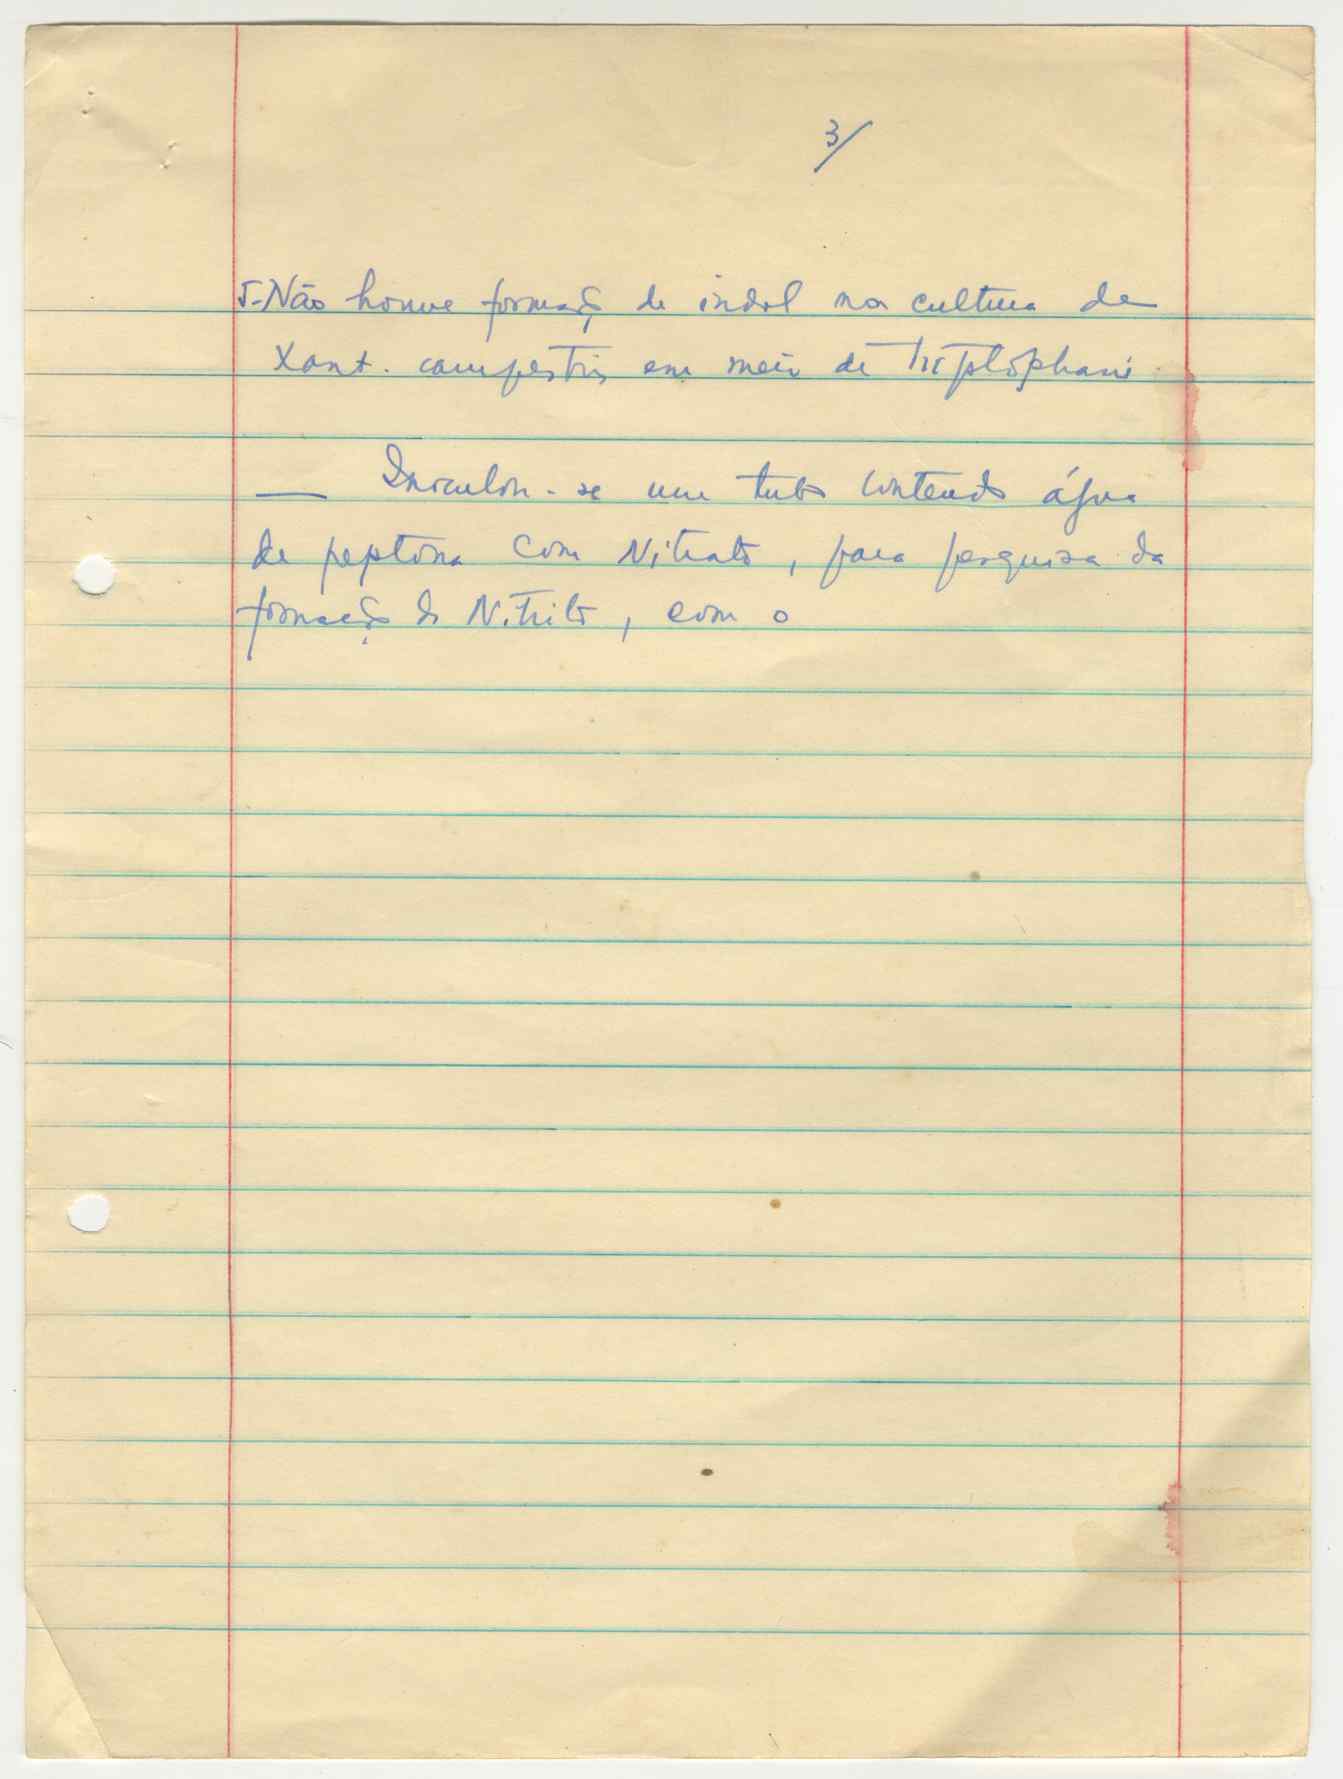 3/
5-Não houve formação de indol na cultura de
Xant. campestris em meio de Triptophane
— Inoculou-se um tubo contendo água
de peptona com Nitrato, para pesquisa da
formação do Nitrito, com o